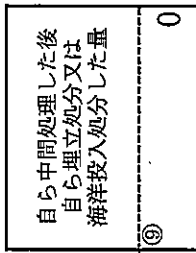 自ら中間処理した後
自ら埋立処分又は
海洋投入処分した量
⑨ 0